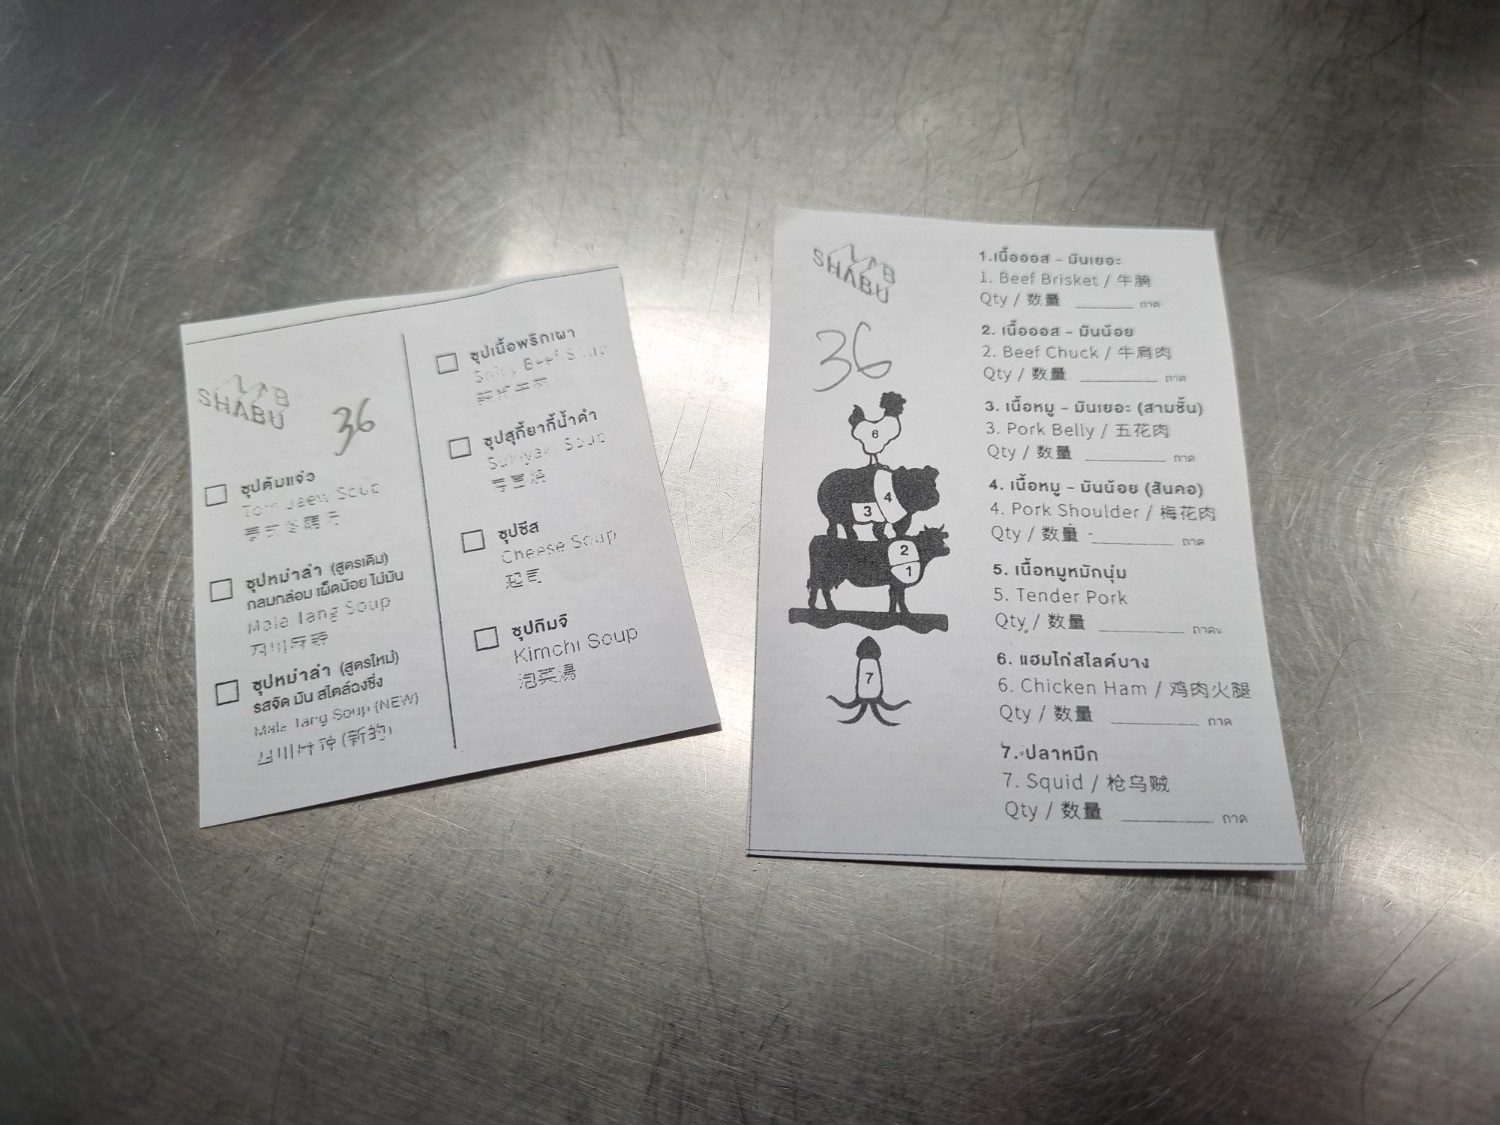 LAB
SHABU
36
ซุปต้มแจ่ว
Tom Jaew Soup
ซุปหม่าล่า (สูตรเดิม)
กลมกล่อม เผ็ดน้อย ไม่มัน
Mala Tang Soup
四川麻辣
ซุปหม่าล่า (สูตรใหม่)
รสจัด มัน สไตล์ฉงชิ่ง
Mala Tang Soup (NEW)
四川麻辣 (新的)
ซุปเนื้อพริกเผา
Spicy Beef Soup
ซุปสุกี้ยากี้น้ำดำ
Sukiyaki Soup
寿喜烧
ซุปชีส
Cheese Soup
起司
ซุปกิมจิ
Kimchi Soup
泡菜湯
LAB
SHABU
36
6
4
3
2
1
7
1.เนื้อออส - มันเยอะ
1. Beef Brisket / 牛腩
Qty / 数量 ________ ถาด
2. เนื้อออส - มันน้อย
2. Beef Chuck / 牛肩肉
Qty / 数量 ________ ถาด
3. เนื้อหมู - มันเยอะ (สามชั้น)
3. Pork Belly / 五花肉
Qty / 数量 ________ ถาด
4. เนื้อหมู - มันน้อย (สันคอ)
4. Pork Shoulder / 梅花肉
Qty / 数量 ________ ถาด
5. เนื้อหมูหมักนุ่ม
5. Tender Pork
Qty / 数量 ________ ถาด
6. แฮมไก่สไลด์บาง
6. Chicken Ham / 鸡肉火腿
Qty / 数量 ________ ถาด
7. ปลาหมึก
7. Squid / 枪乌贼
Qty / 数量 ________ ถาด